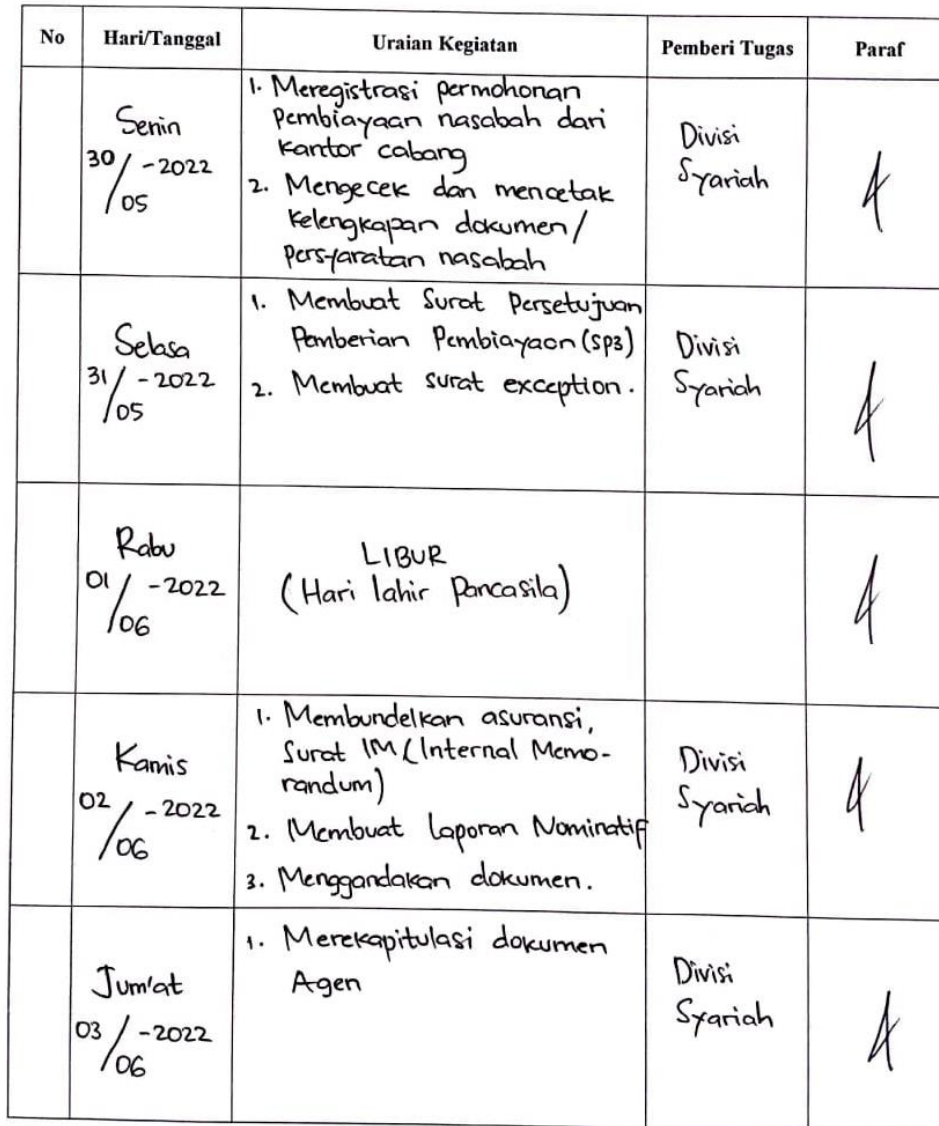 No Hari/Tanggal Uraian Kegiatan Pemberi Tugas Paraf
Senin
30/05-2022
1. Meregistrasi permohonan
pembiayaan nasabah dari
kantor cabang
2. Mengecek dan mencetak
kelengkapan dokumen/
persyaratan nasabah
Divisi
Syariah
Selasa
31/05-2022
1. Membuat Surat Persetujuan
Pemberian Pembiayaan (SP3)
2. Membuat surat exception.
Divisi
Syariah
Rabu
01/06-2022
LIBUR
(Hari lahir Pancasila)
Kamis
02/06-2022
1. Membundelkan asuransi,
Surat IM (Internal Memo-
randum)
2. Membuat laporan Nominatif
3. Menggandakan dokumen.
Divisi
Syariah
Jum'at
03/06-2022
1. Merekapitulasi dokumen
Agen
Divisi
Syariah